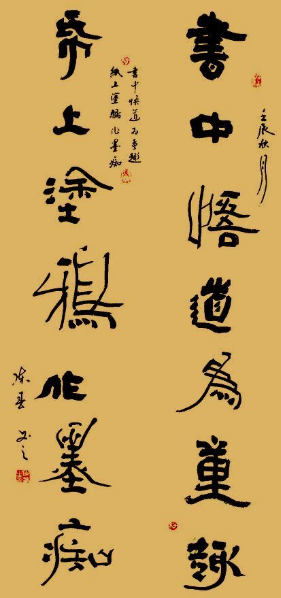 書中悟道為趣
壬辰秋月
帋上塗鴉作墨痴
書中悟道為趣
紙上塗鴉作墨痴
陳